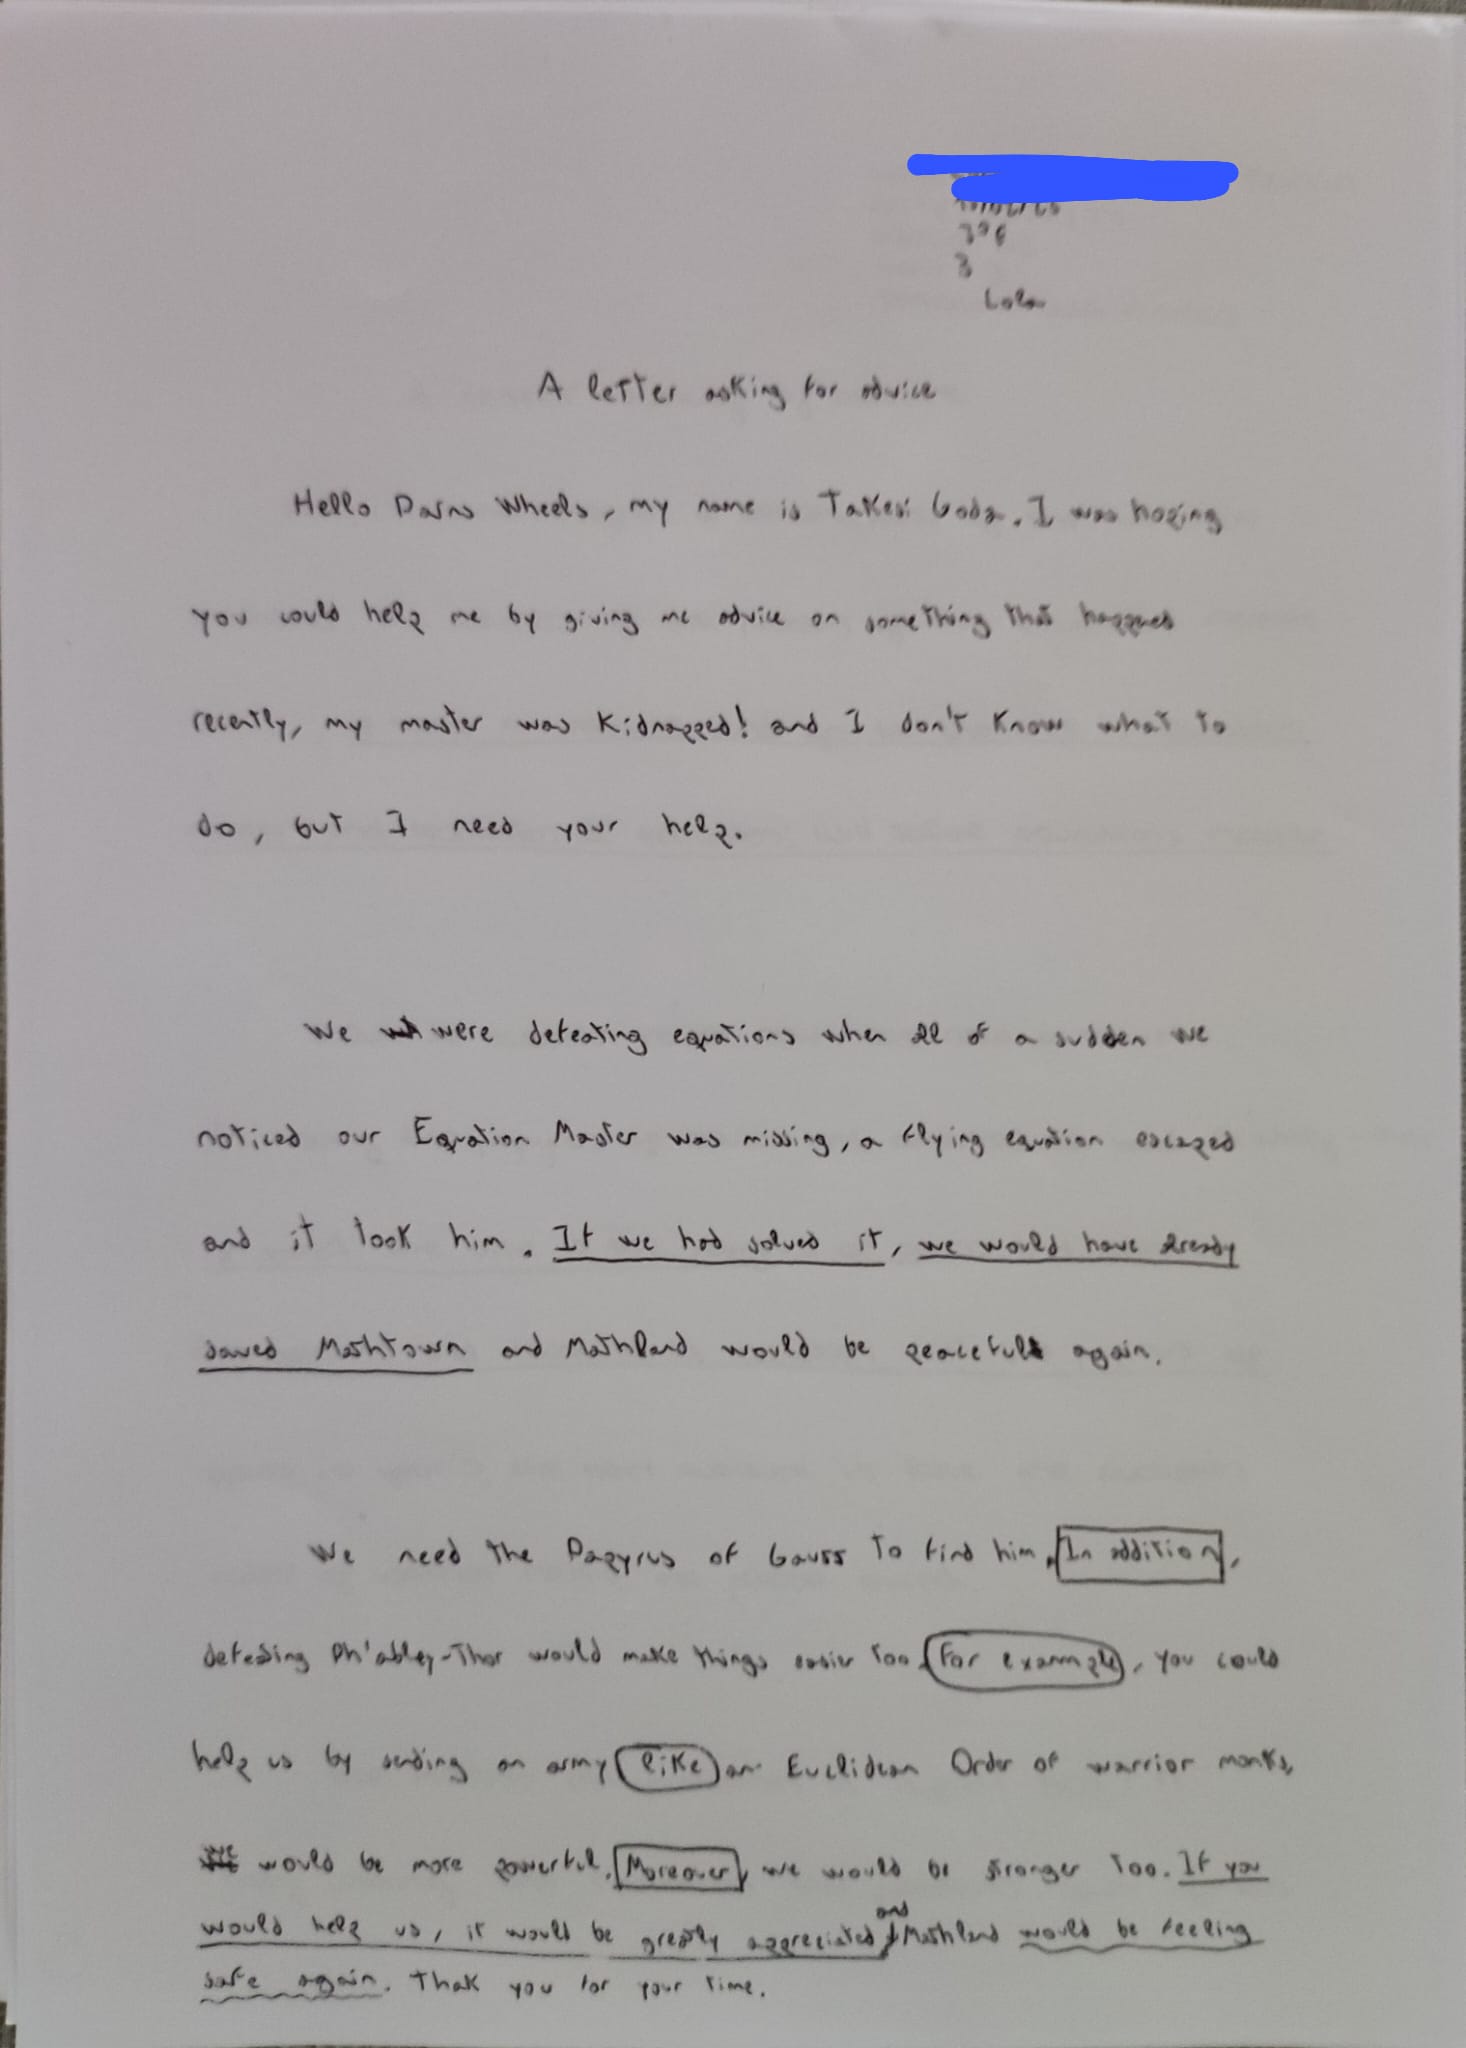 3
Lola
A letter asking for advice
Hello Darns Wheels, my name is Takesi Goda. I was hoping
you could help me by giving me advice on something that happened
recently, my master was kidnapped! and I don't know what to
do, but I need your help.
We were defeating equations when all of a sudden we
noticed our Equation Master was missing, a flying equation escaped
and it took him. If we had solved it, we would have already
saved Mathtown and Mathland would be peaceful again.
We need the Papyrus of Gauss to find him. In addition,
defeating Ph'abley-Thor would make things easier too. For example, you could
help us by sending an army like an Euclidean Order of warrior monks,
would be more powerful. Moreover, we would be stronger too. If you
would help us, it would be greatly appreciated and Mathland would be feeling
safe again. Thak you for your time.